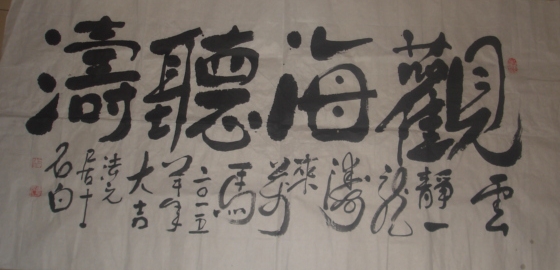 觀海聽濤
雲
靜一
龍
濤
來
萬
馬
二〇一五
羊年
大吉
法元
居士
石白